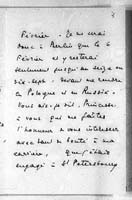 Février. Je ne serai
donc à Berlin que le 4
Février et y resterai
seulement jusqu'au seize ou
dix-sept. devant me rendre
en Pologne et en Russie.
vous Princesse,
à vous qui me faites
l'honneur de vous intéresser
avec tant de bonté à ma
carrière, que j'étais
engagé à St Petersbourg